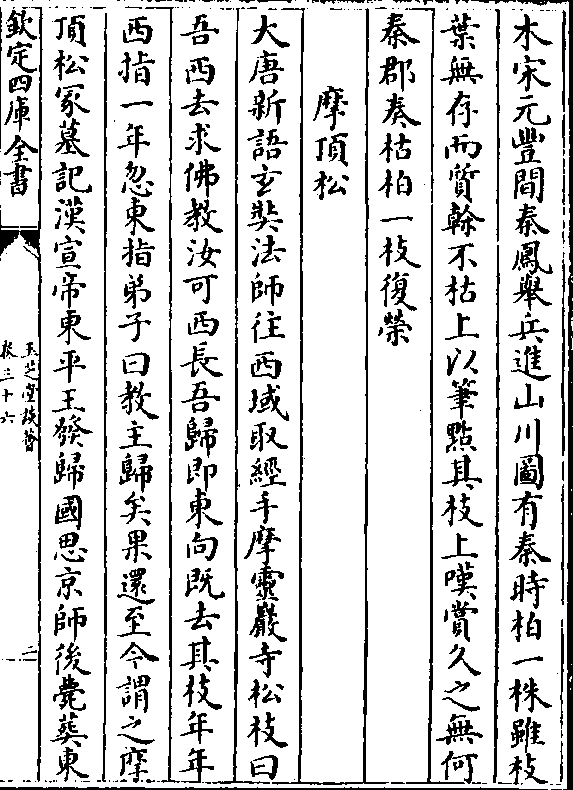 木宋元豐間秦鳳舉兵進山川圖有秦時柏一株雖枝
葉無存而質榦不枯上以筆點其枝上嘆賞久之無何
秦郡奏枯柏一枝復榮
摩頂松
大唐新語玄奘法師往西域取經手摩靈巖寺松枝曰
吾西去求佛教汝可西長吾歸即東向既去其枝年年
西指一年忽東指弟子曰教主歸矣果還至今謂之摩
頂松冢墓記漢宣帝東平王發歸國思京師後薨葬東
欽定四庫全書
玉芝堂談薈
卷三十六
二